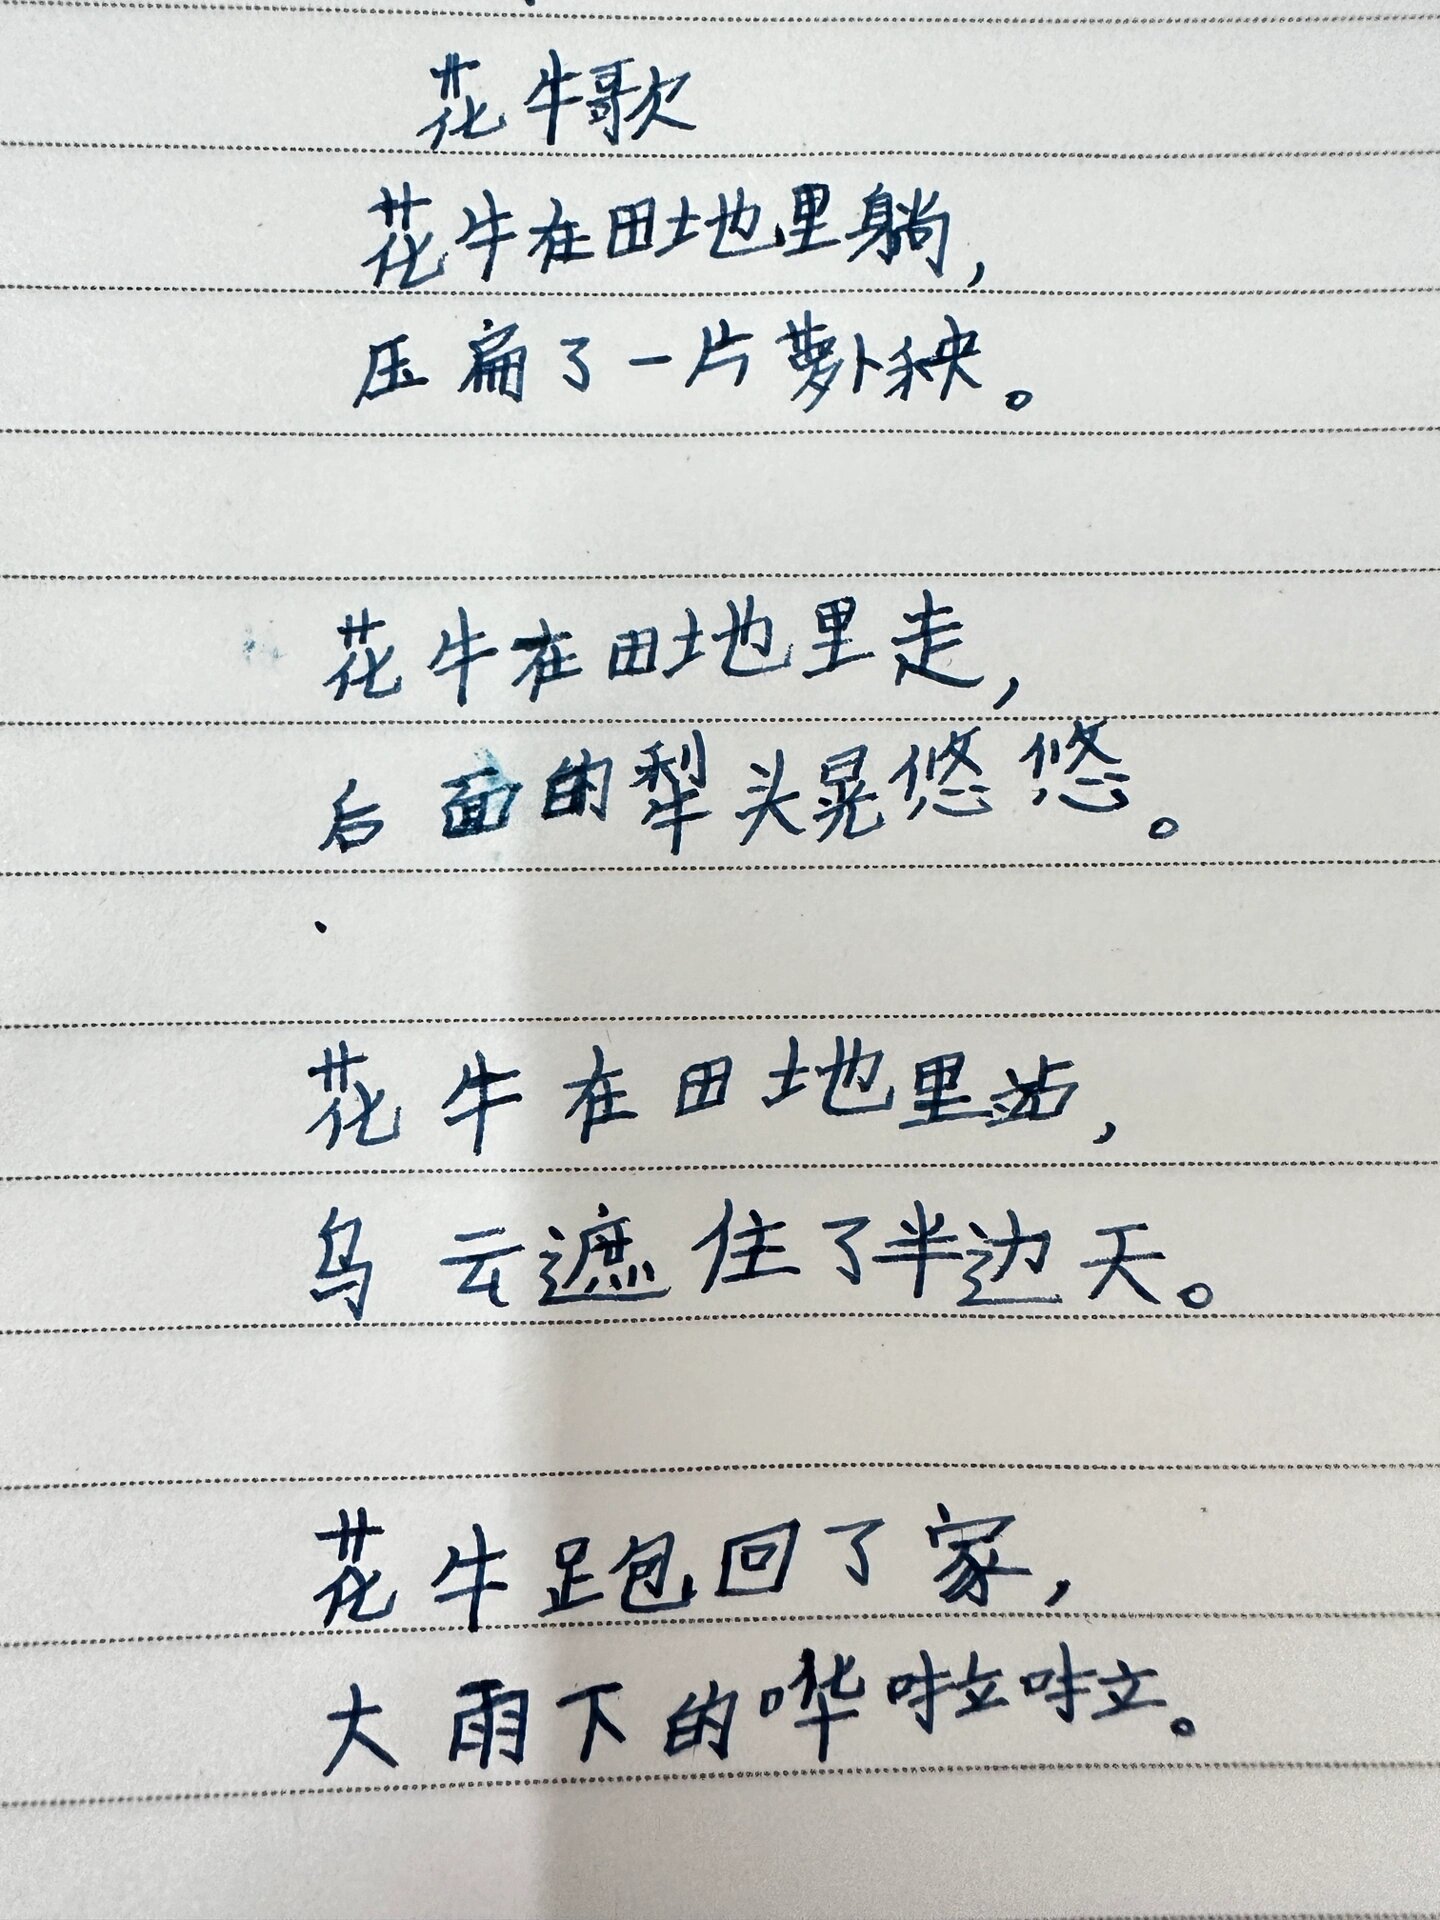 花牛歌
花牛在田地里躺，
压扁了一片萝卜秧。
花牛在田地里走，
后面的犁头晃悠悠。
花牛在田地里站，
乌云遮住了半边天。
花牛跑回了家，
大雨下的哗啦啦。